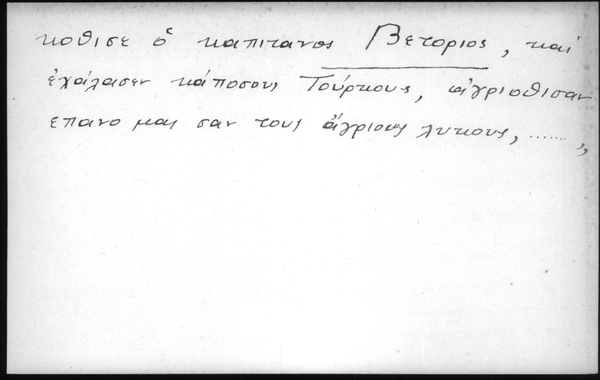 κοθισε ὁ καπιτανος Βετοριος, καὶ
ἐχάλασεν κάποσους Τούρκους, ἀγριοθισαν
επανο μας σαν τους ἄγριους λυκους, ......,